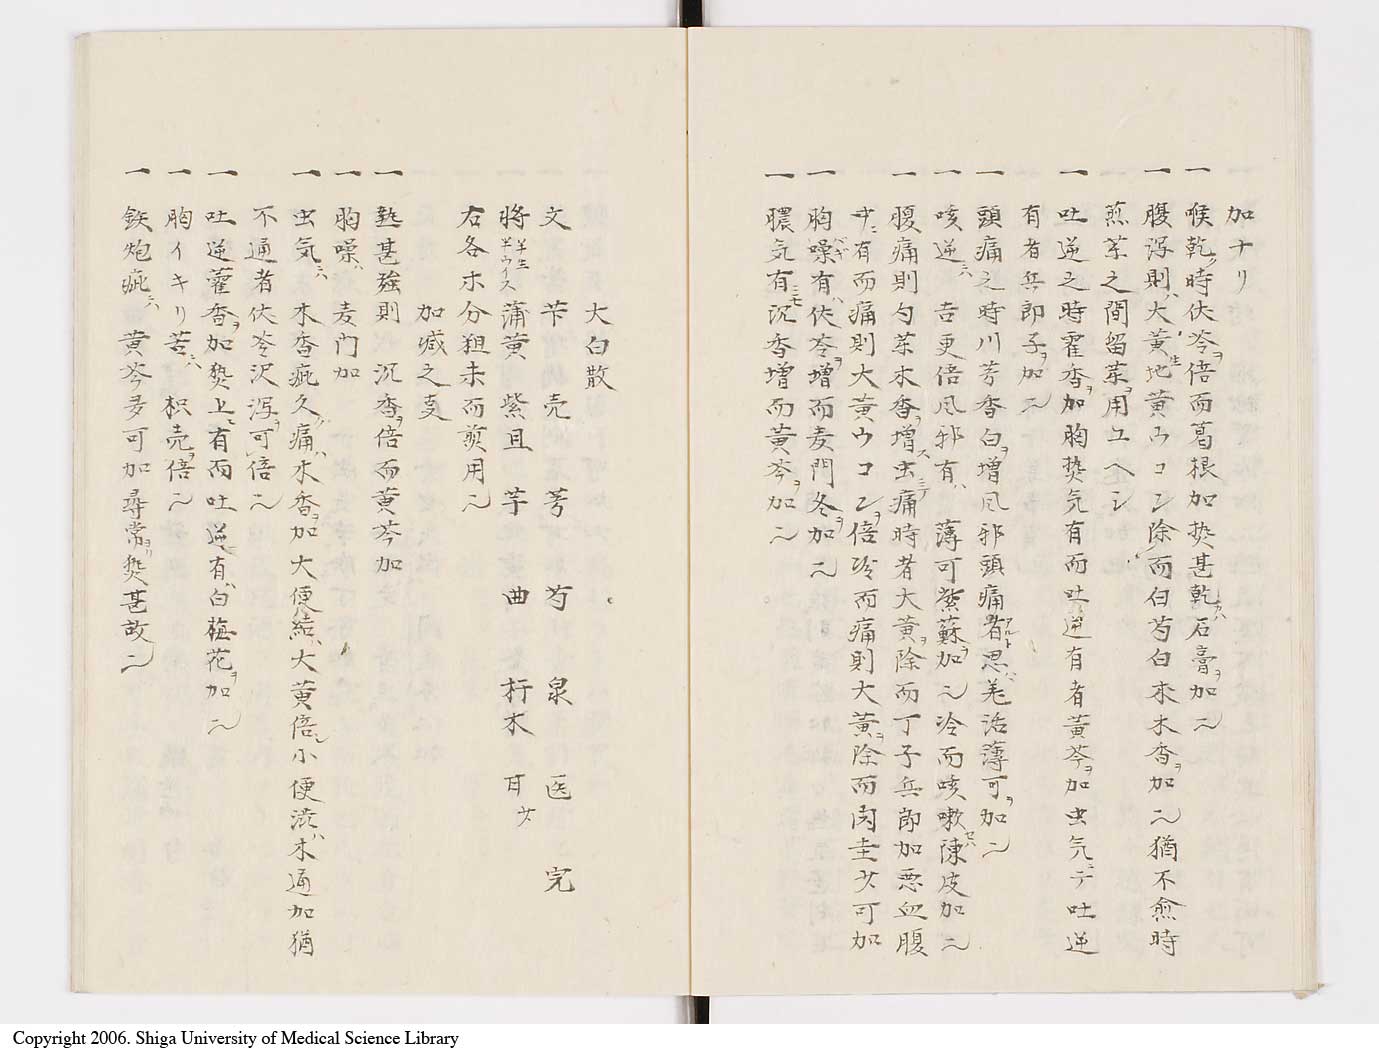 加ナリ
一 喉乾ノ時伏苓ヲ倍而葛根加熱甚乾カハ石膏ヲ加ニ
一 腹瀉則ハ大黄生地黄ウコン除而白芍白朮木香ヲ加ニ猶不愈時
煎茶之間留茶ヲ用ユヘシ
一 吐逆之時霍香ヲ加胸熱気有而吐逆有者黄芩ヲ加虫気ニテ吐逆
有者兵郎子ヲ加ニ
一 頭痛之時川芎香白ヲ増風邪頭痛者アルト思ハ羌活薄可ヲ加ニ
一 咳逆ニハ吉更倍風邪有ハ薄可紫蘇ヲ加ニ冷而咳嗽セハ陳皮加ニ
一 腹痛則勺茶木香ヲ増ス虫ニテ痛時者大黄ヲ除而丁子兵郎加悪血腹
中ニ有而痛則大黄ウコンヲ倍冷而痛則大黄ヲ除而肉圭少可加
一 胸噪ベキ有ハ伏苓ヲ増而麦門冬ヲ加ニ
一 膿気有ニモ沉香増而黄芩ヲ加ニ
大白散
文 芐 売 芎 芍 泉 医 完
将半生半ウイス 蒲黄 紫且 芋 曲 杆木 甘少
右各木分粗末而煎用ニ
加減之支
一 熱甚強則 沉香ヲ倍而黄芩加
一 胸噪ハ 麦門加
一 虫気ニハ 木香疵久ク痛ハ木香ヲ加大便結ハ大黄倍シ小便渋ハ木通加猶
不通者伏苓沢瀉ヲ可倍ニ
一 吐逆藿香ヲ加熱上ニ有而吐逆有ハ白梅花ヲ加ニ
一 胸イキリ苦ハ 枳売ヲ倍ニ
一 鉄炮疵ニハ 黄芩多可加尋常ヨリ熱甚故ニ
Copyright 2006. Shiga University of Medical Science Library